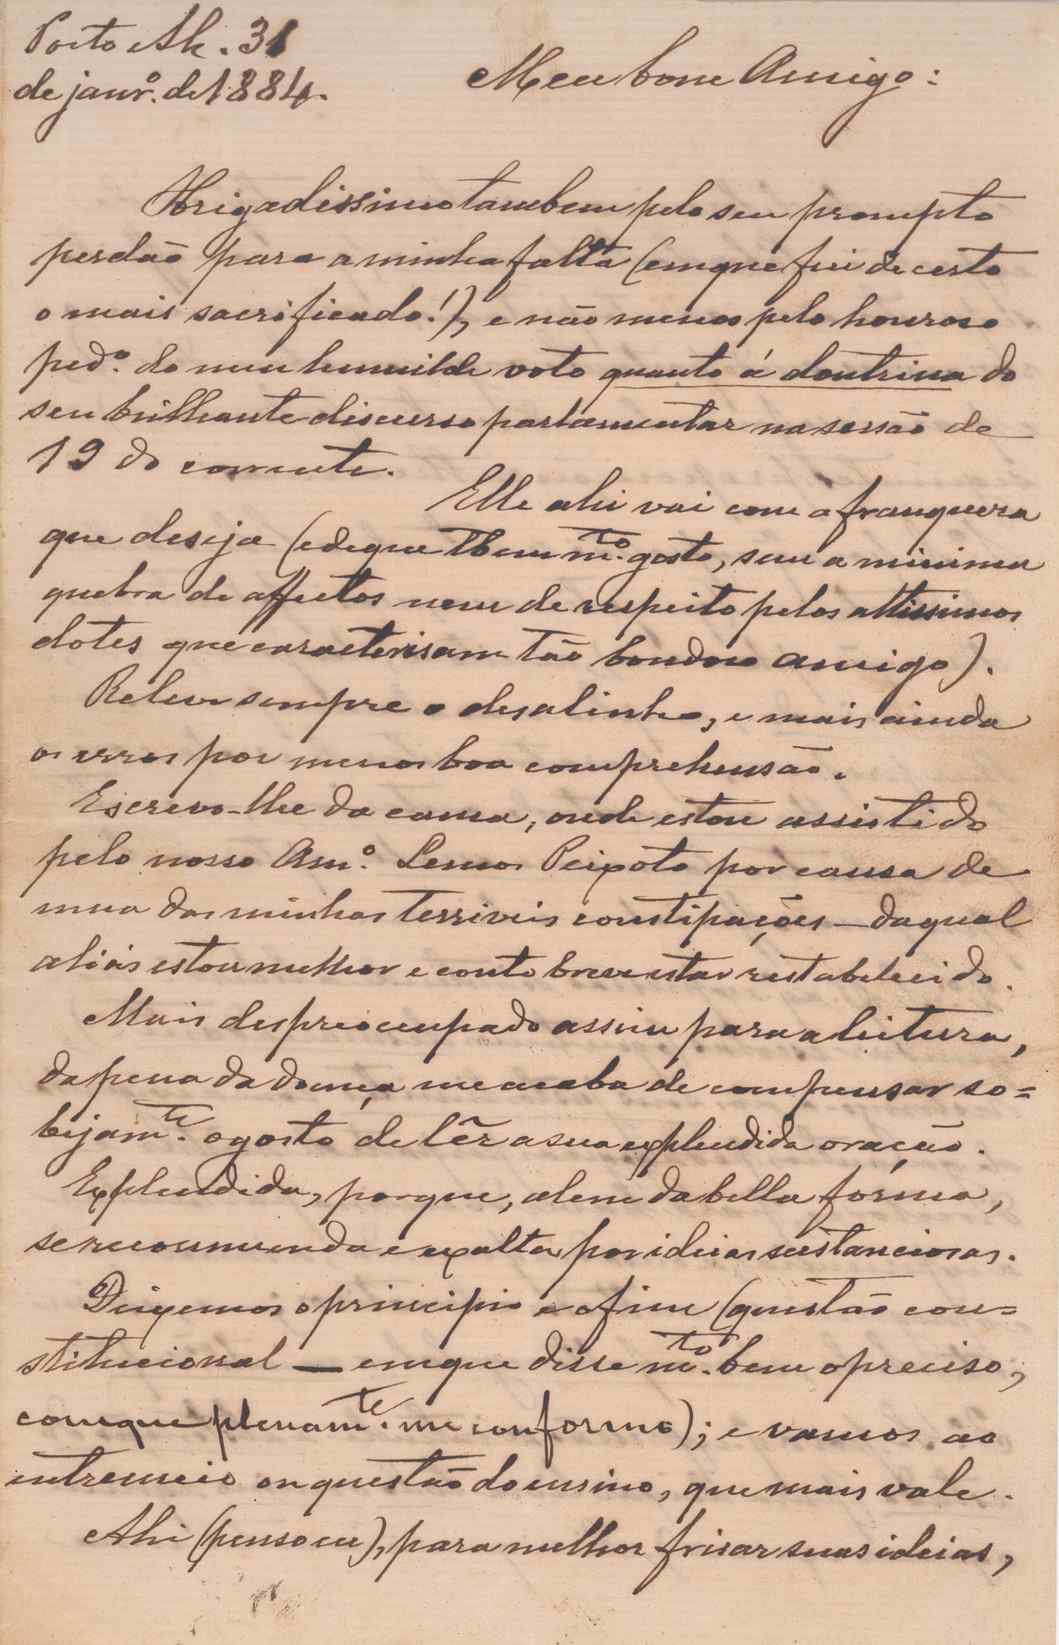 Porto Al. 31
de janr.º de 1884.
Meu bom Amigo:
Obrigadissimo tambem pelo seu prompto
perdão para a minha falta (em que fui de certo
o mais sacrificado!), e não menos pelo honroso
ped.º do meu humilde voto quanto á doutrina do
seu brilhante discurso parlamentar na sessão de
19 do corrente.
Elle ahi vai com a franqueza
que deseja (e de que tbem m.to gosto, sem a minima
quebra de affectos nem de respeito pelos altissimos
dotes que caracterisam tão bondoso amigo).
Releve sempre o desalinho, e mais ainda
os erros por menos boa comprehensão.
Escrevo-lhe da cama, onde estou assistido
pelo nosso Am.º Lemos Peixoto por causa de
uma das minhas terriveis constipações — da qual
aliás estou melhor e conto breve estar restabelecido.
Mais despreoccupado assim para a leitura,
da pena da doença me acaba de compensar so=
bejam.te o gosto de lêr a sua explendida oração.
Explendida, porque, alem da bella fórma,
se recommenda e exalta por ideias sustanciosas.
Deixemos o principio e o fim (questão con=
stitucional — em que disse m.to bem o preciso,
com que plenam.te me conformo); e vamos ao
entremeio ou questão do ensino, que mais vale.
Ahi (penso eu), para melhor frisar suas ideias,